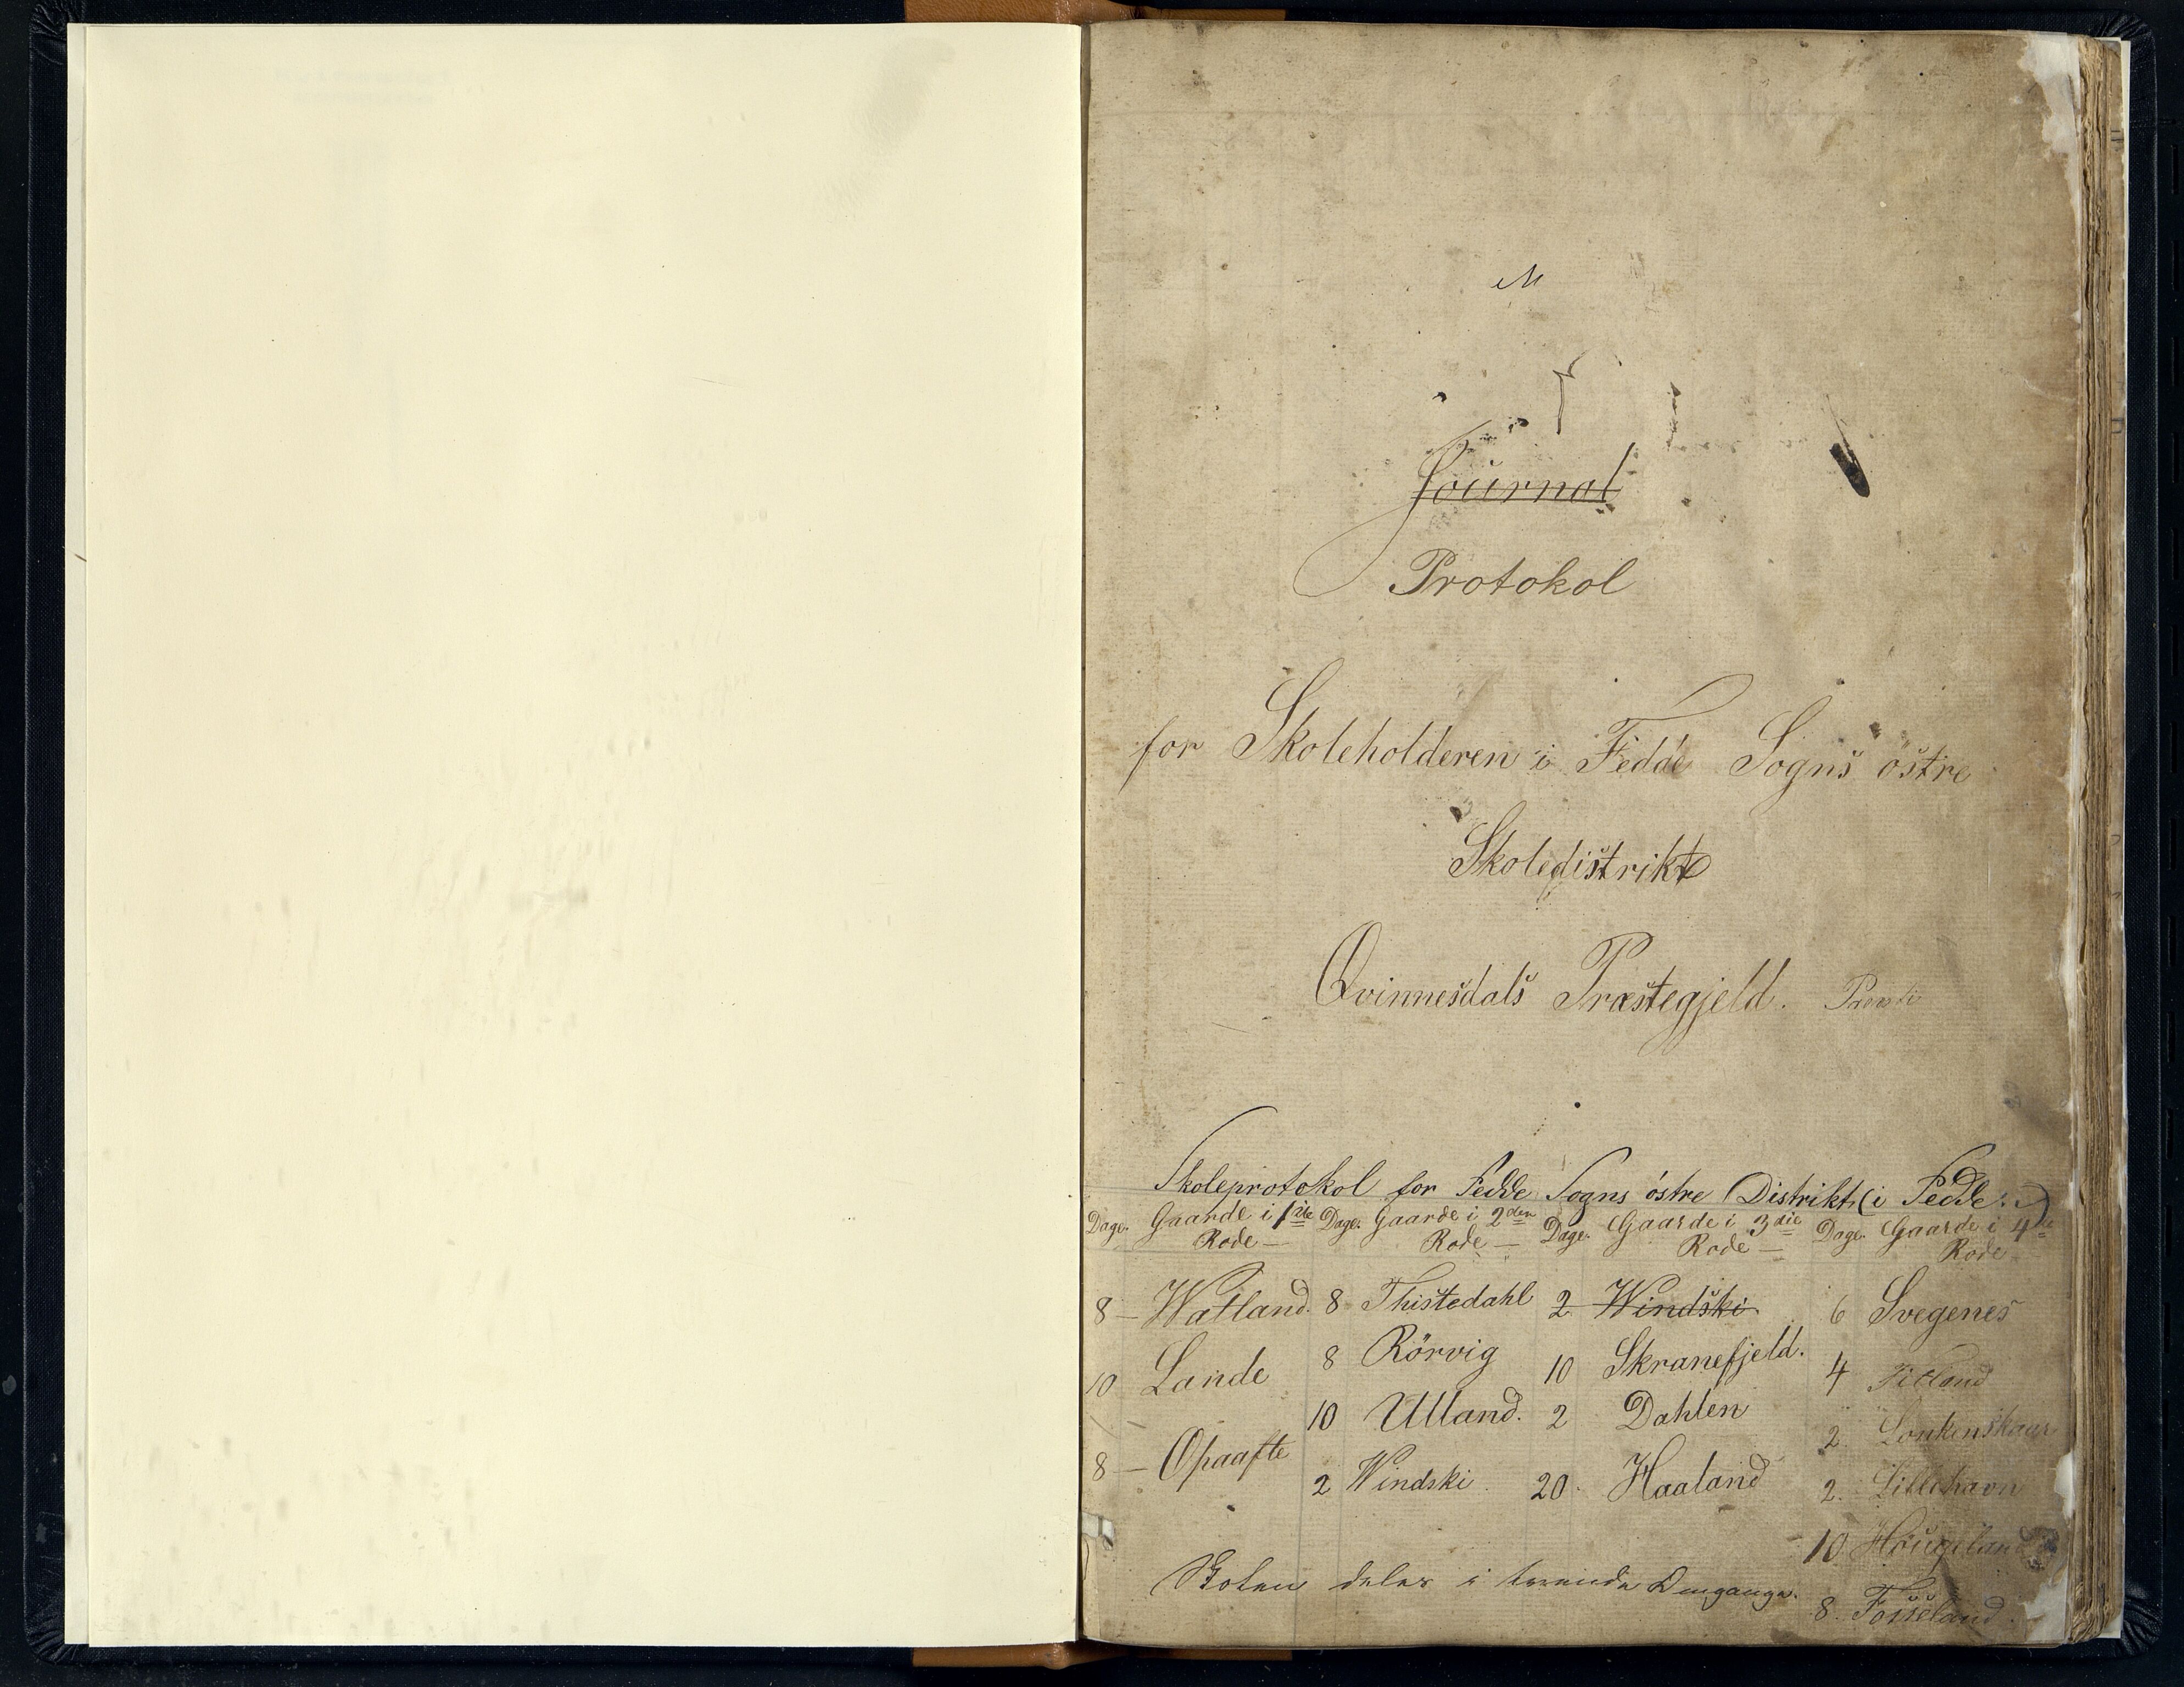 M
Journal
Protokol
for Skoleholderen i Fedde Sogns östre
Skoledistrikt
Qvinnesdals Præstegjeld.
Skoleprotokol for Fedde Sogns östre Distrikt (i Fedde.)
Dage. Gaarde i 1ste Rode — Dage. Gaarde i 2den Rode — Dage. Gaarde i 3die Rode — Dage. Gaarde i 4de Rode
8 — Watland. 8 Thistedahl 2 Windski 6 Svegenes
10 Lande 8 Rörvig 10 Skranefjeld. 4 Fitland
10 Ulland. 2 Dahlen 2 Lonkenskaar
8 — Opaafte 2 Windski 20. Haaland 2. Lillehavn
10 Hougeland
Skolen deles i tvende Omgange.
8. Fosseland.